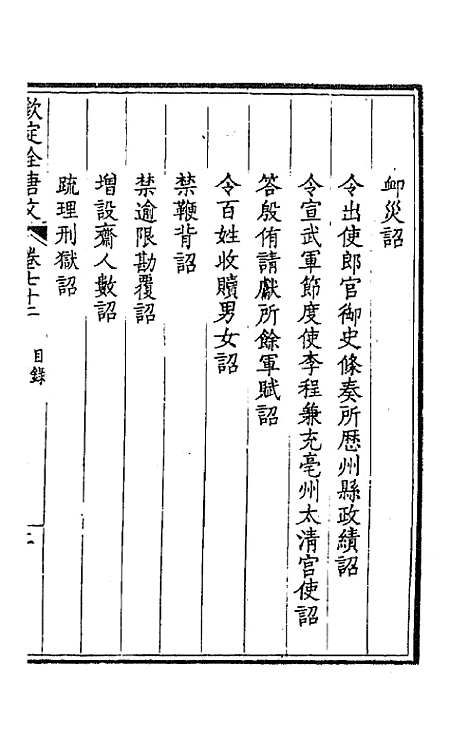 卹災詔
令出使郎官御史條奏所歷州縣政績詔
令宣武軍節度使李程兼充亳州太清宮使詔
答殷侑請獻所餘軍賦詔
令百姓收贖男女詔
禁鞭背詔
禁逾限勘覆詔
增設齋人數詔
疏理刑獄詔
欽定全唐文 卷七十二 目錄